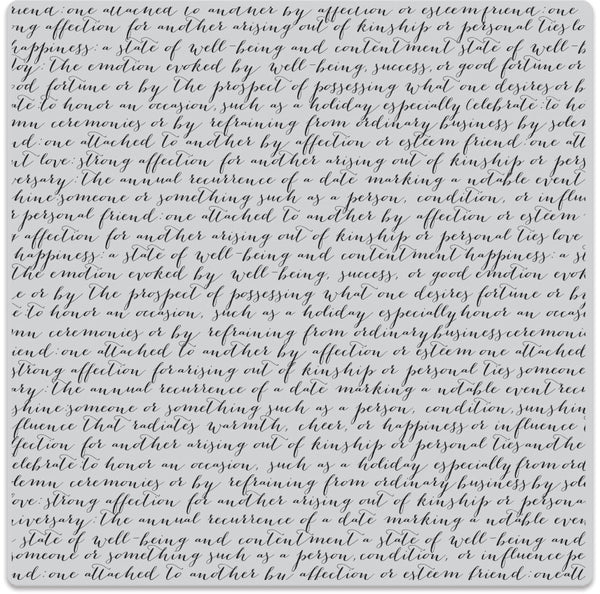 riend: one attached to another by affection or esteem friend: one
ng affection for another arising out of kinship or personal ties lo
happiness: a state of well-being and contentment state of well-b
Joy: the emotion evoked by well-being, success, or good fortune or
od fortune or by the prospect of possessing what one desires or b
ate: to honor an occasion, such as a holiday especially Celebrate: to ho
mn ceremonies or by refraining from ordinary business by solem
nd: one attached to another by affection or esteem friend: one att
nt love: strong affection for another arising out of kinship or pers
versary: the annual recurrence of a date marking a notable event
hine: someone or something such as a person, condition, or influ
r personal friend: one attached to another by affection or esteem
affection for another arising out of kinship or personal ties love
happiness: a state of well-being and contentment happiness: a s
the emotion evoked by well-being, success, or good emotion evok
e or by the prospect of possessing what one desires fortune or by
e: to honor an occasion, such as a holiday especially honor an occas
mn ceremonies or by refraining from ordinary business ceremoni
iend: one attached to another by affection or esteem one attached
strong affection for arising out of kinship or personal ties someone
ary: the annual recurrence of a date marking a notable event recu
shine: someone or something such as a person, condition, sunshin
fluence that radiates warmth, cheer, or happiness or influence
fection for another arising out of kinship or personal ties anothe
elebrate to honor an occasion, such as a holiday especially from ord
lemn ceremonies or by refraining from ordinary business by sole
ove: strong affection for another arising out of kinship or persona
niversary: the annual recurrence of a date marking a notable even
state of well-being and contentment a state of well-being and
omeone or something such as a person, condition, or influence pe
nd: one attached to another by affection or esteem friend: one att